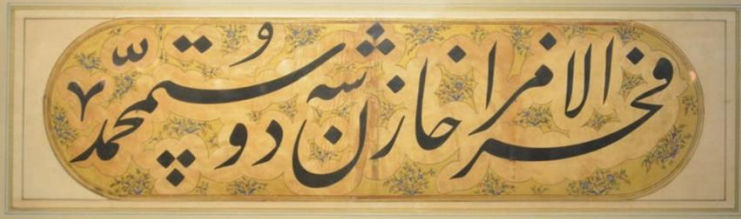 فخر الامرا خازن شه دوستمحمد